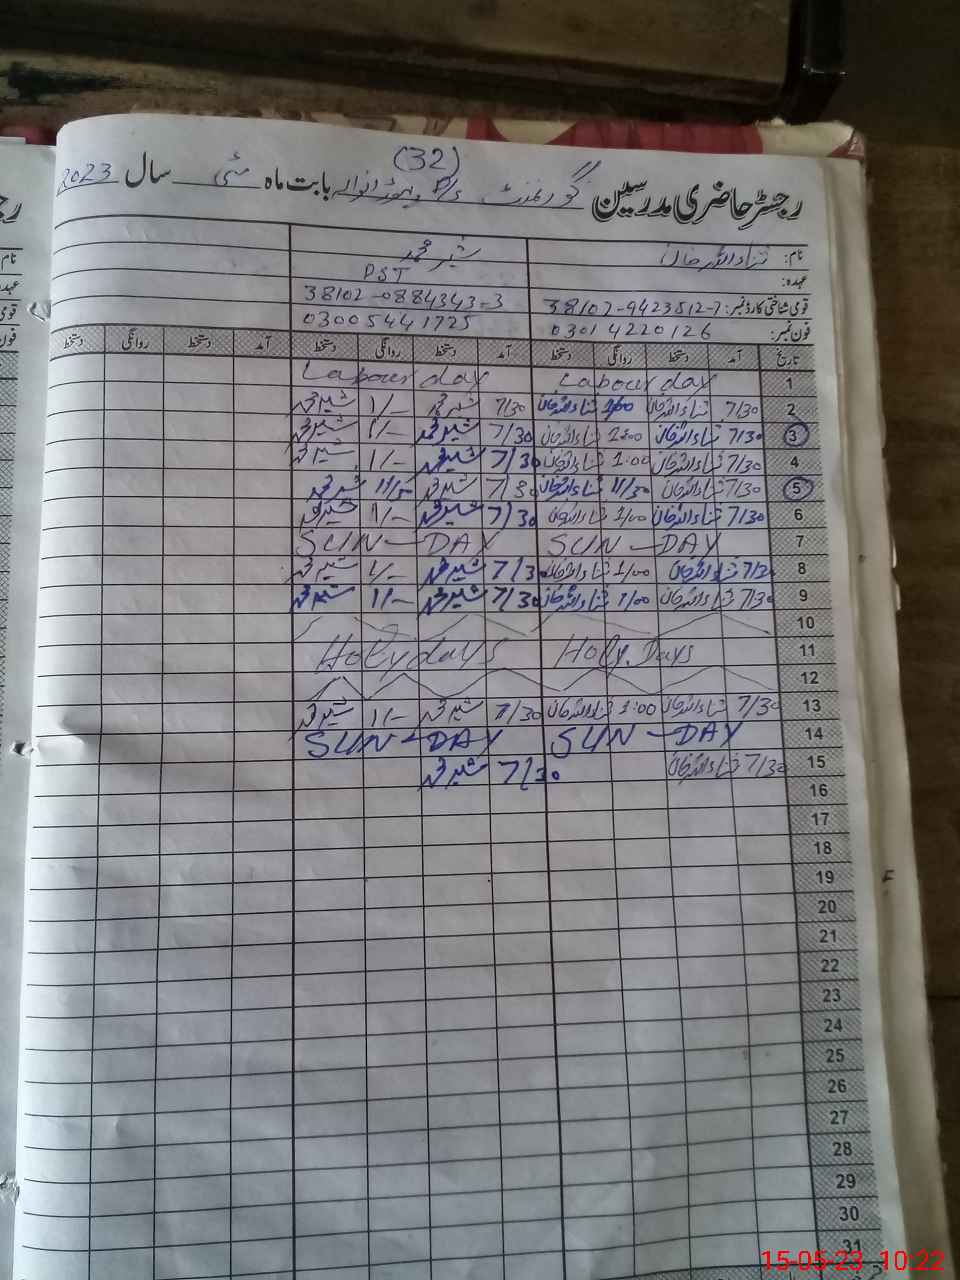 (32)
رجسٹر حاضری مدرسین گورنمنٹ P/s بابت ماہ مئی سال 2023
نام: ثناء اللہ خان شیر محمد
عہدہ: PST
قومی شناختی کارڈ نمبر: 38102-9423512-7 38102-0884343-3
فون نمبر: 03014220126 03005441725
تاریخ آمد دستخط روانگی دستخط آمد دستخط روانگی دستخط آمد دستخط روانگی دستخط
1 Labour day Labour day
2 7/30 ثناء اللہ خان 1/00 ثناء اللہ خان 7/30 شیر محمد 1/- شیر محمد
3 7/30 ثناء اللہ خان 1:00 ثناء اللہ خان 7/30 شیر محمد 1/- شیر محمد
4 7/30 ثناء اللہ خان 1:00 ثناء اللہ خان 7/30 شیر محمد 1/- شیر محمد
5 7/30 ثناء اللہ خان 11/30 ثناء اللہ خان 7/30 شیر محمد شیر محمد
6 7/30 ثناء اللہ خان 1/00 ثناء اللہ خان 7/30 شیر محمد 1/- شیر محمد
7 SUN-DAY SUN-DAY
8 7/30 ثناء اللہ خان 1/00 ثناء اللہ خان 7/30 شیر محمد 1/- شیر محمد
9 7/30 ثناء اللہ خان 1/00 ثناء اللہ خان 7/30 شیر محمد 1/- شیر محمد
10
11 Holy.Days Holydays
12
13 7/30 ثناء اللہ خان 1:00 ثناء اللہ خان 7/30 شیر محمد 1/- شیر محمد
14 SUN-DAY SUN-DAY
15 7/30 ثناء اللہ خان 7/30 شیر محمد
16
17
18
19
20
21
22
23
24
25
26
27
28
29
30
31
15-05-23 10:22